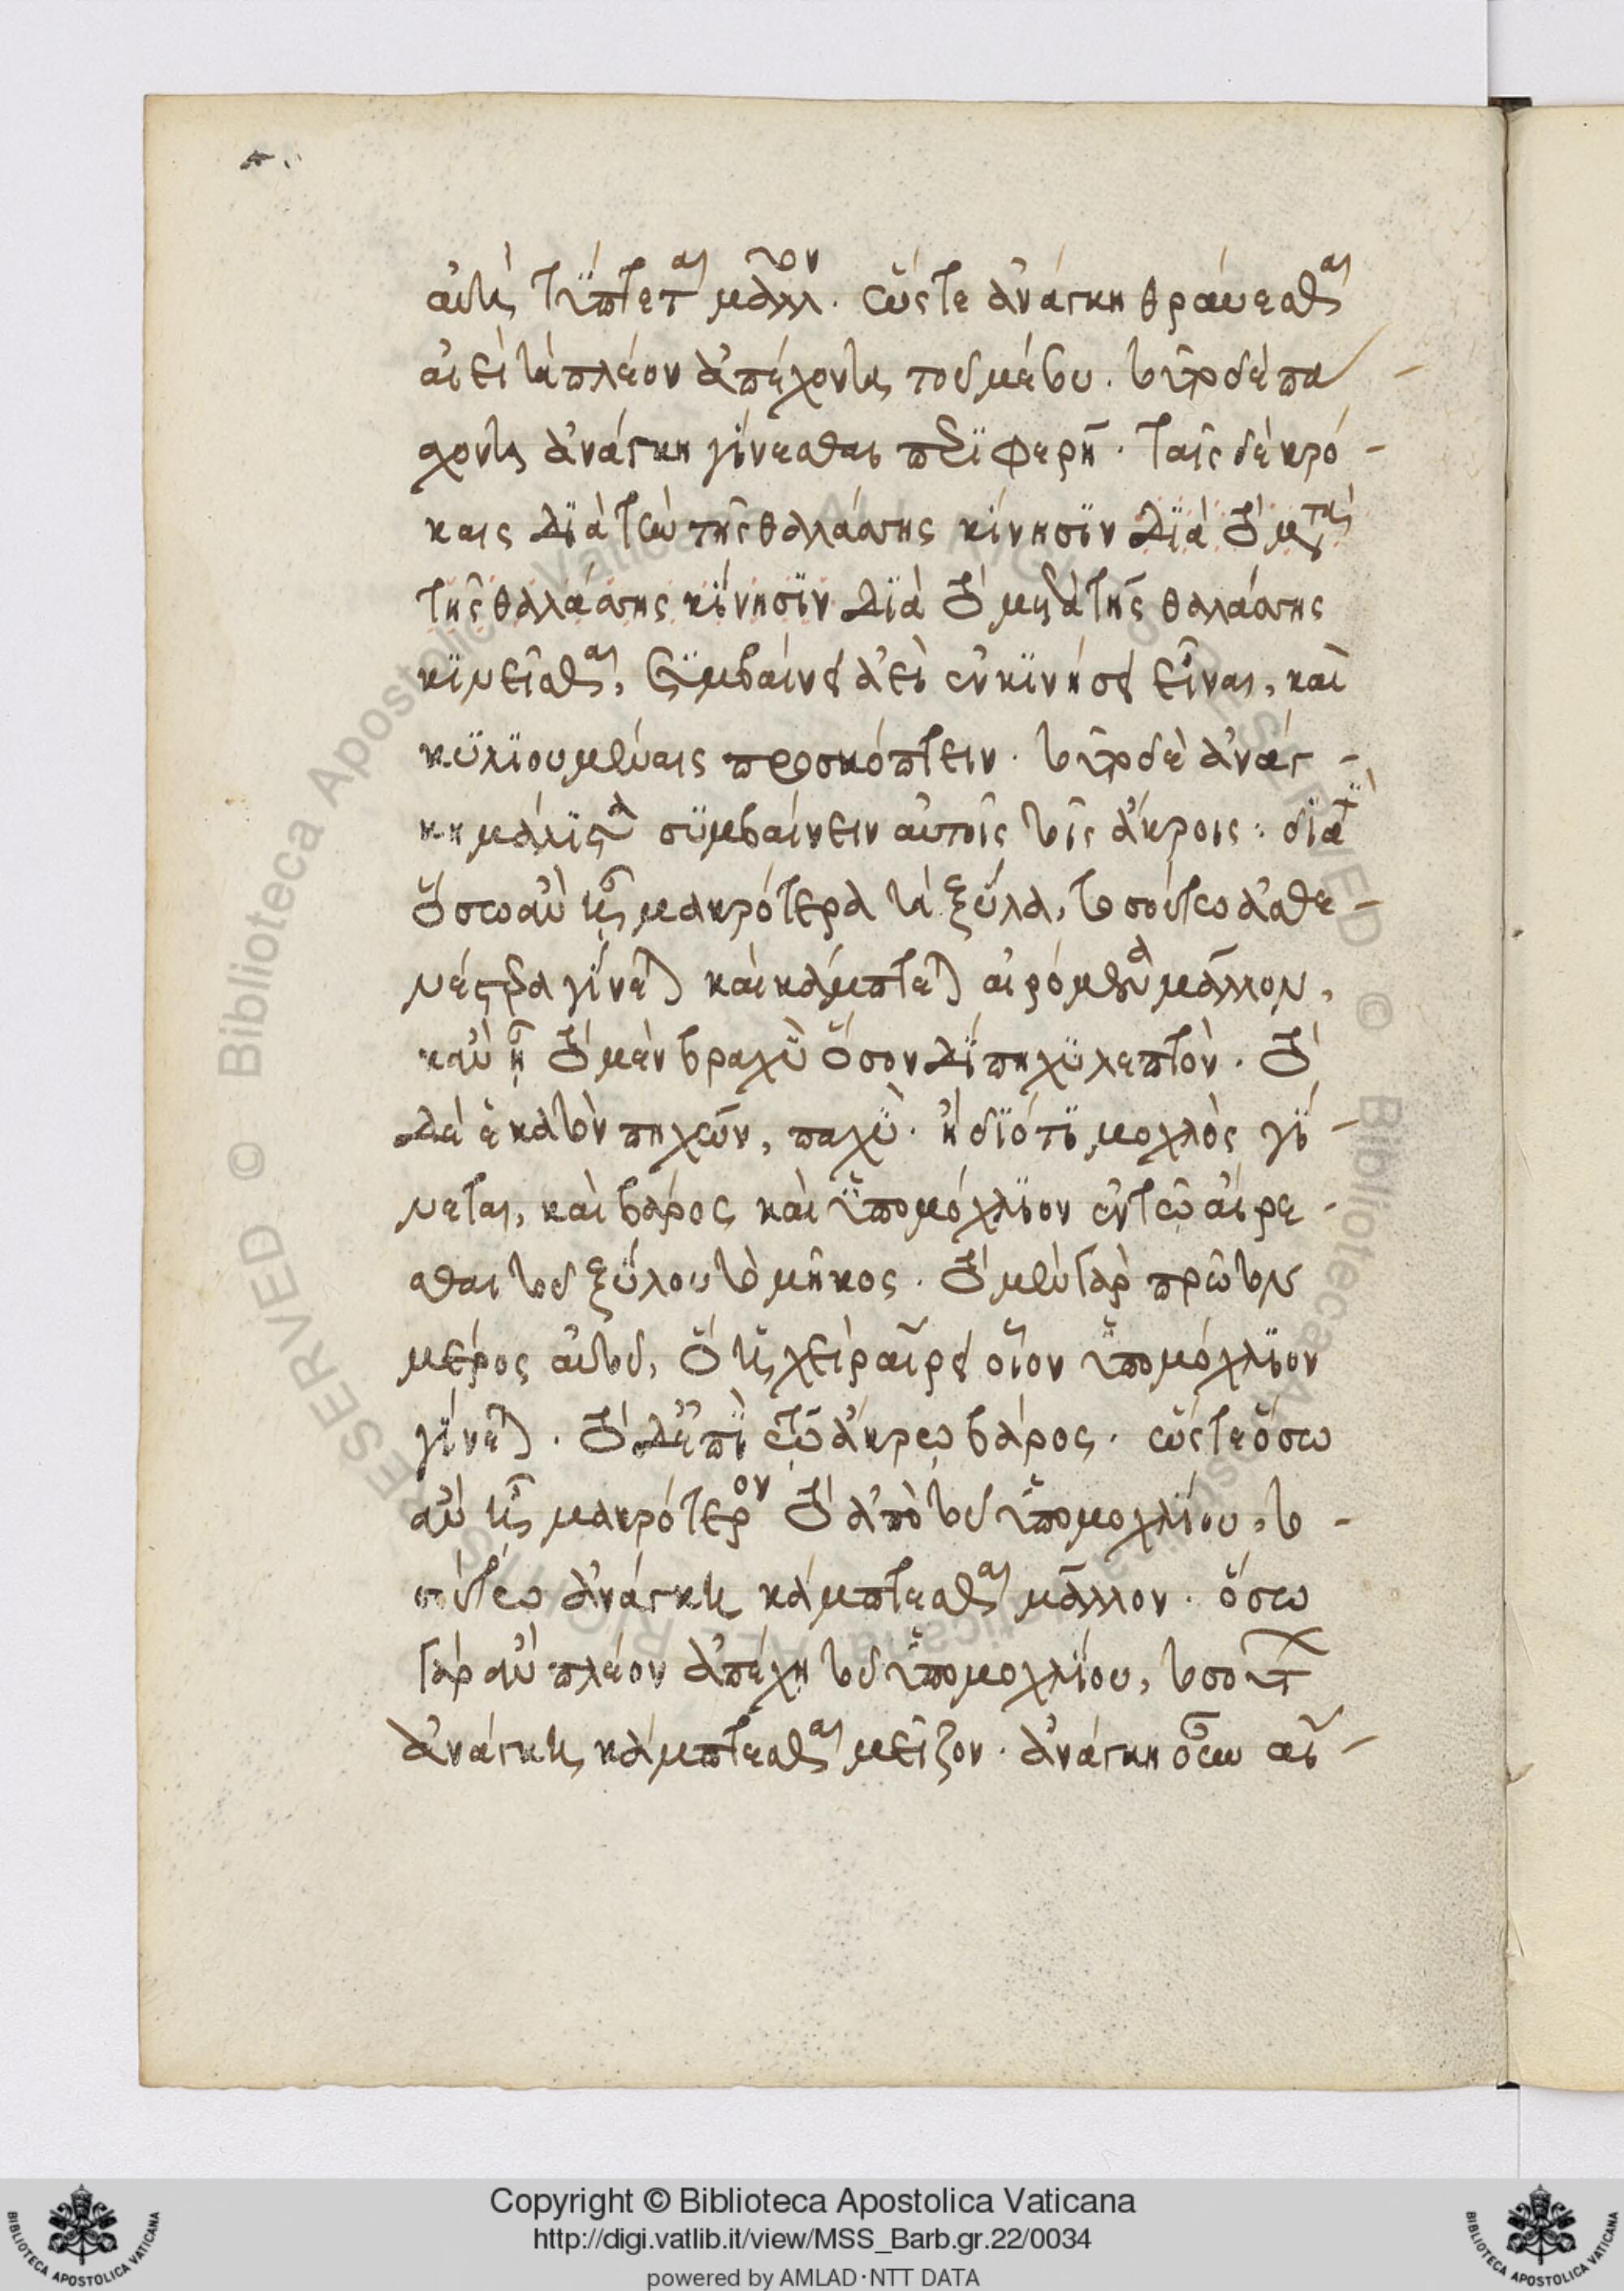 αὐτῆ τύπτεται μᾶλλον. ὥστε ἀνάγκη θραύεσθαι
αἰεὶ τὰ πλέον ἀπέχοντα τοῦ μέσου. τοῦτο δὲ πά
σχοντα ἀνάγκη γίνεσθαι περιφερῆ. ταῖς δὲ κρό-
καις διὰ τὴν τῆς θαλάσσης κίνησιν διὰ τὸ μετὰ
τῆς θαλάσσης κίνησιν διὰ τὸ μετὰ τῆς θαλάσσης
κινεῖσθαι, συμβαίνει ἀεὶ ἐν κινήσει εἶναι, καὶ
κυλιουμέναις προσκόπτειν. τοῦτο δὲ ἀνάγ-
κη μάλιστα συμβαίνειν αὐτοῖς τοῖς ἄκροις: διατί
ὅσω ἂν ᾖ μακρότερα τὰ ξύλα, τοσούτω ἀσθε-
νέστερα γίνεται καὶ κάμπτεται αἰρόμενα μᾶλλον,
κἂν ᾖ τὸ μὲν βραχὺ ὅσον δίπηχυ λεπτὸν. τὸ
δὲ ἑκατὸν πηχῶν, παχύ. ἢ διότι μοχλὸς γί-
νεται, καὶ βάρος καὶ ὑπομόχλιον ἐν τῶ αἴρε-
σθαι τοῦ ξύλου τὸ μῆκος. τὸ μὲν γὰρ πρῶτον
μέρος αὐτοῦ, ὃ ἡ χεὶρ αἴρει οἷον ὑπομόχλιον
γίνεται. τὸ δ' ἐπὶ τῶ ἄκρω βάρος. ὥστε ὅσω
ἂν ᾖ μακρότερον τὸ ἀπὸ τοῦ ὑπομοχλίου, το-
σούτω ἀνάγκη κάμπτεσθαι μᾶλλον. ὅσω
γὰρ ἂν πλέον ἀπέχη τοῦ ὑπομοχλίου, τοσοῦτον
ἀνάγκη κάμπτεσθαι μεῖζον. ἀνάγκη οὖν αἴ-
Copyright © Biblioteca Apostolica Vaticana
http://digi.vatlib.it/view/MSS_Barb.gr.22/0034
powered by AMLAD·NTT DATA